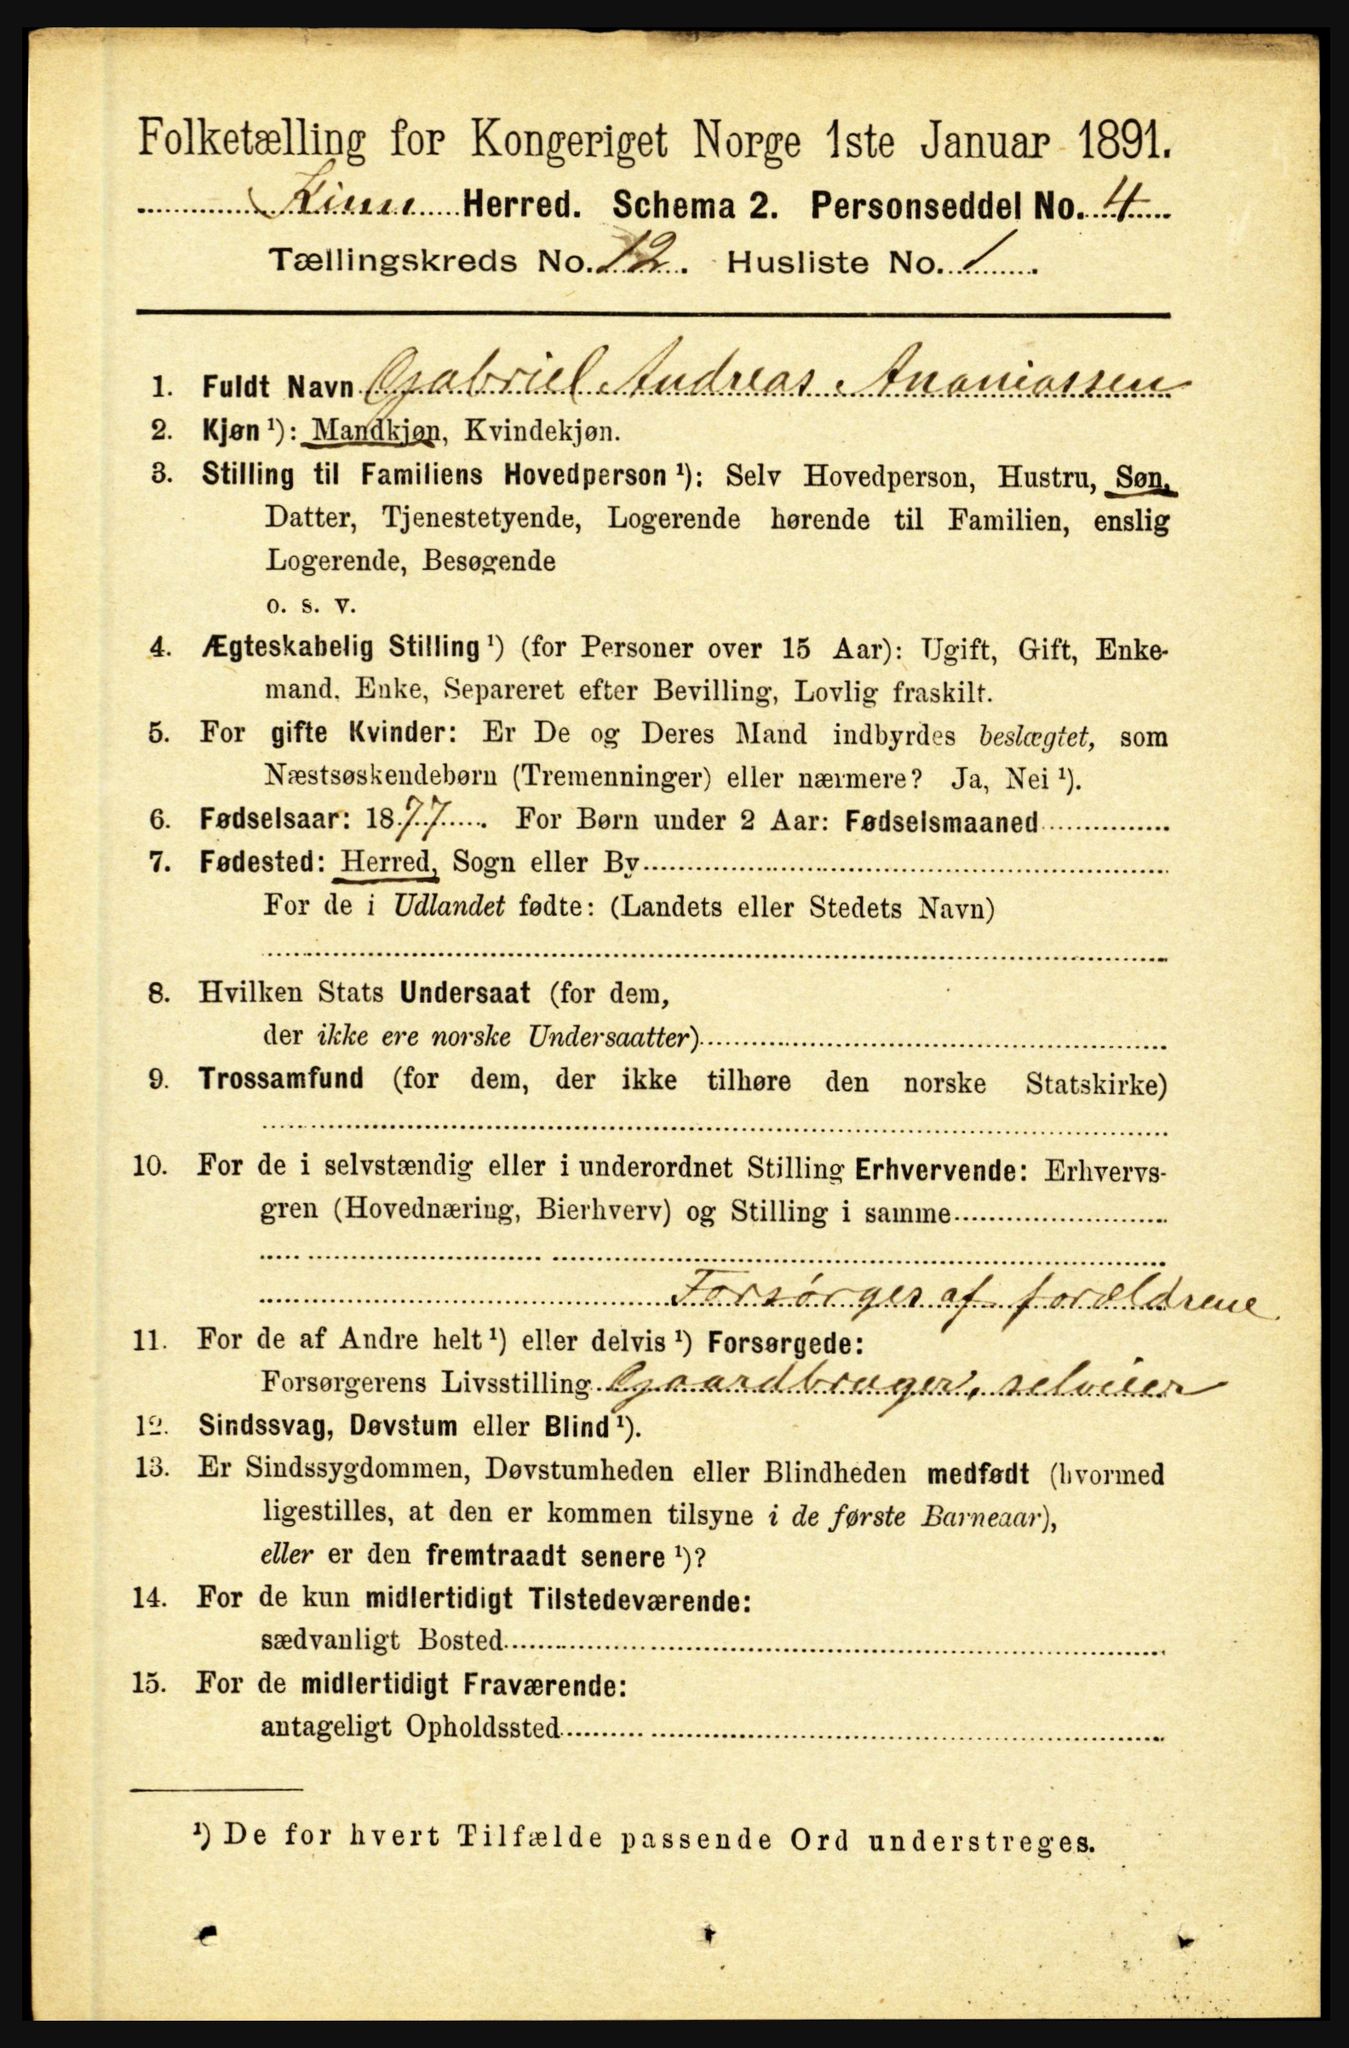 Folketælling for Kongeriget Norge 1ste Januar 1891.
Kinn Herred. Schema 2. Personseddel No. 4
Tællingskreds No. 12. Husliste No. 1.
1. Fuldt Navn Gabriel Andreas Ananiassen
2. Kjøn ¹): Mandkjøn, Kvindekjøn.
3. Stilling til Familiens Hovedperson ¹): Selv Hovedperson, Hustru, Søn,
Datter, Tjenestetyende, Logerende hørende til Familien, enslig
Logerende, Besøgende
o. s. v.
4. Ægteskabelig Stilling ¹) (for Personer over 15 Aar): Ugift, Gift, Enke-
mand, Enke, Separeret efter Bevilling, Lovlig fraskilt.
5. For gifte Kvinder: Er De og Deres Mand indbyrdes beslægtet, som
Næstsøskendebørn (Tremenninger) eller nærmere? Ja, Nei ¹).
6. Fødselsaar: 1877. For Børn under 2 Aar: Fødselsmaaned
7. Fødested: Herred, Sogn eller By
For de i Udlandet fødte: (Landets eller Stedets Navn)
8. Hvilken Stats Undersaat (for dem,
der ikke ere norske Undersaatter)
9. Trossamfund (for dem, der ikke tilhøre den norske Statskirke)
10. For de i selvstændig eller i underordnet Stilling Erhvervende: Erhvervs-
gren (Hovednæring, Bierhverv) og Stilling i samme
Forsørges af forældrene
11. For de af Andre helt ¹) eller delvis ¹) Forsørgede:
Forsørgerens Livsstilling Gaardbruger, selveier
12. Sindssvag, Døvstum eller Blind ¹).
13. Er Sindssygdommen, Døvstumheden eller Blindheden medfødt (hvormed
ligestilles, at den er kommen tilsyne i de første Barneaar),
eller er den fremtraadt senere ¹)?
14. For de kun midlertidigt Tilstedeværende:
sædvanligt Bosted
15. For de midlertidigt Fraværende:
antageligt Opholdssted
¹) De for hvert Tilfælde passende Ord understreges.